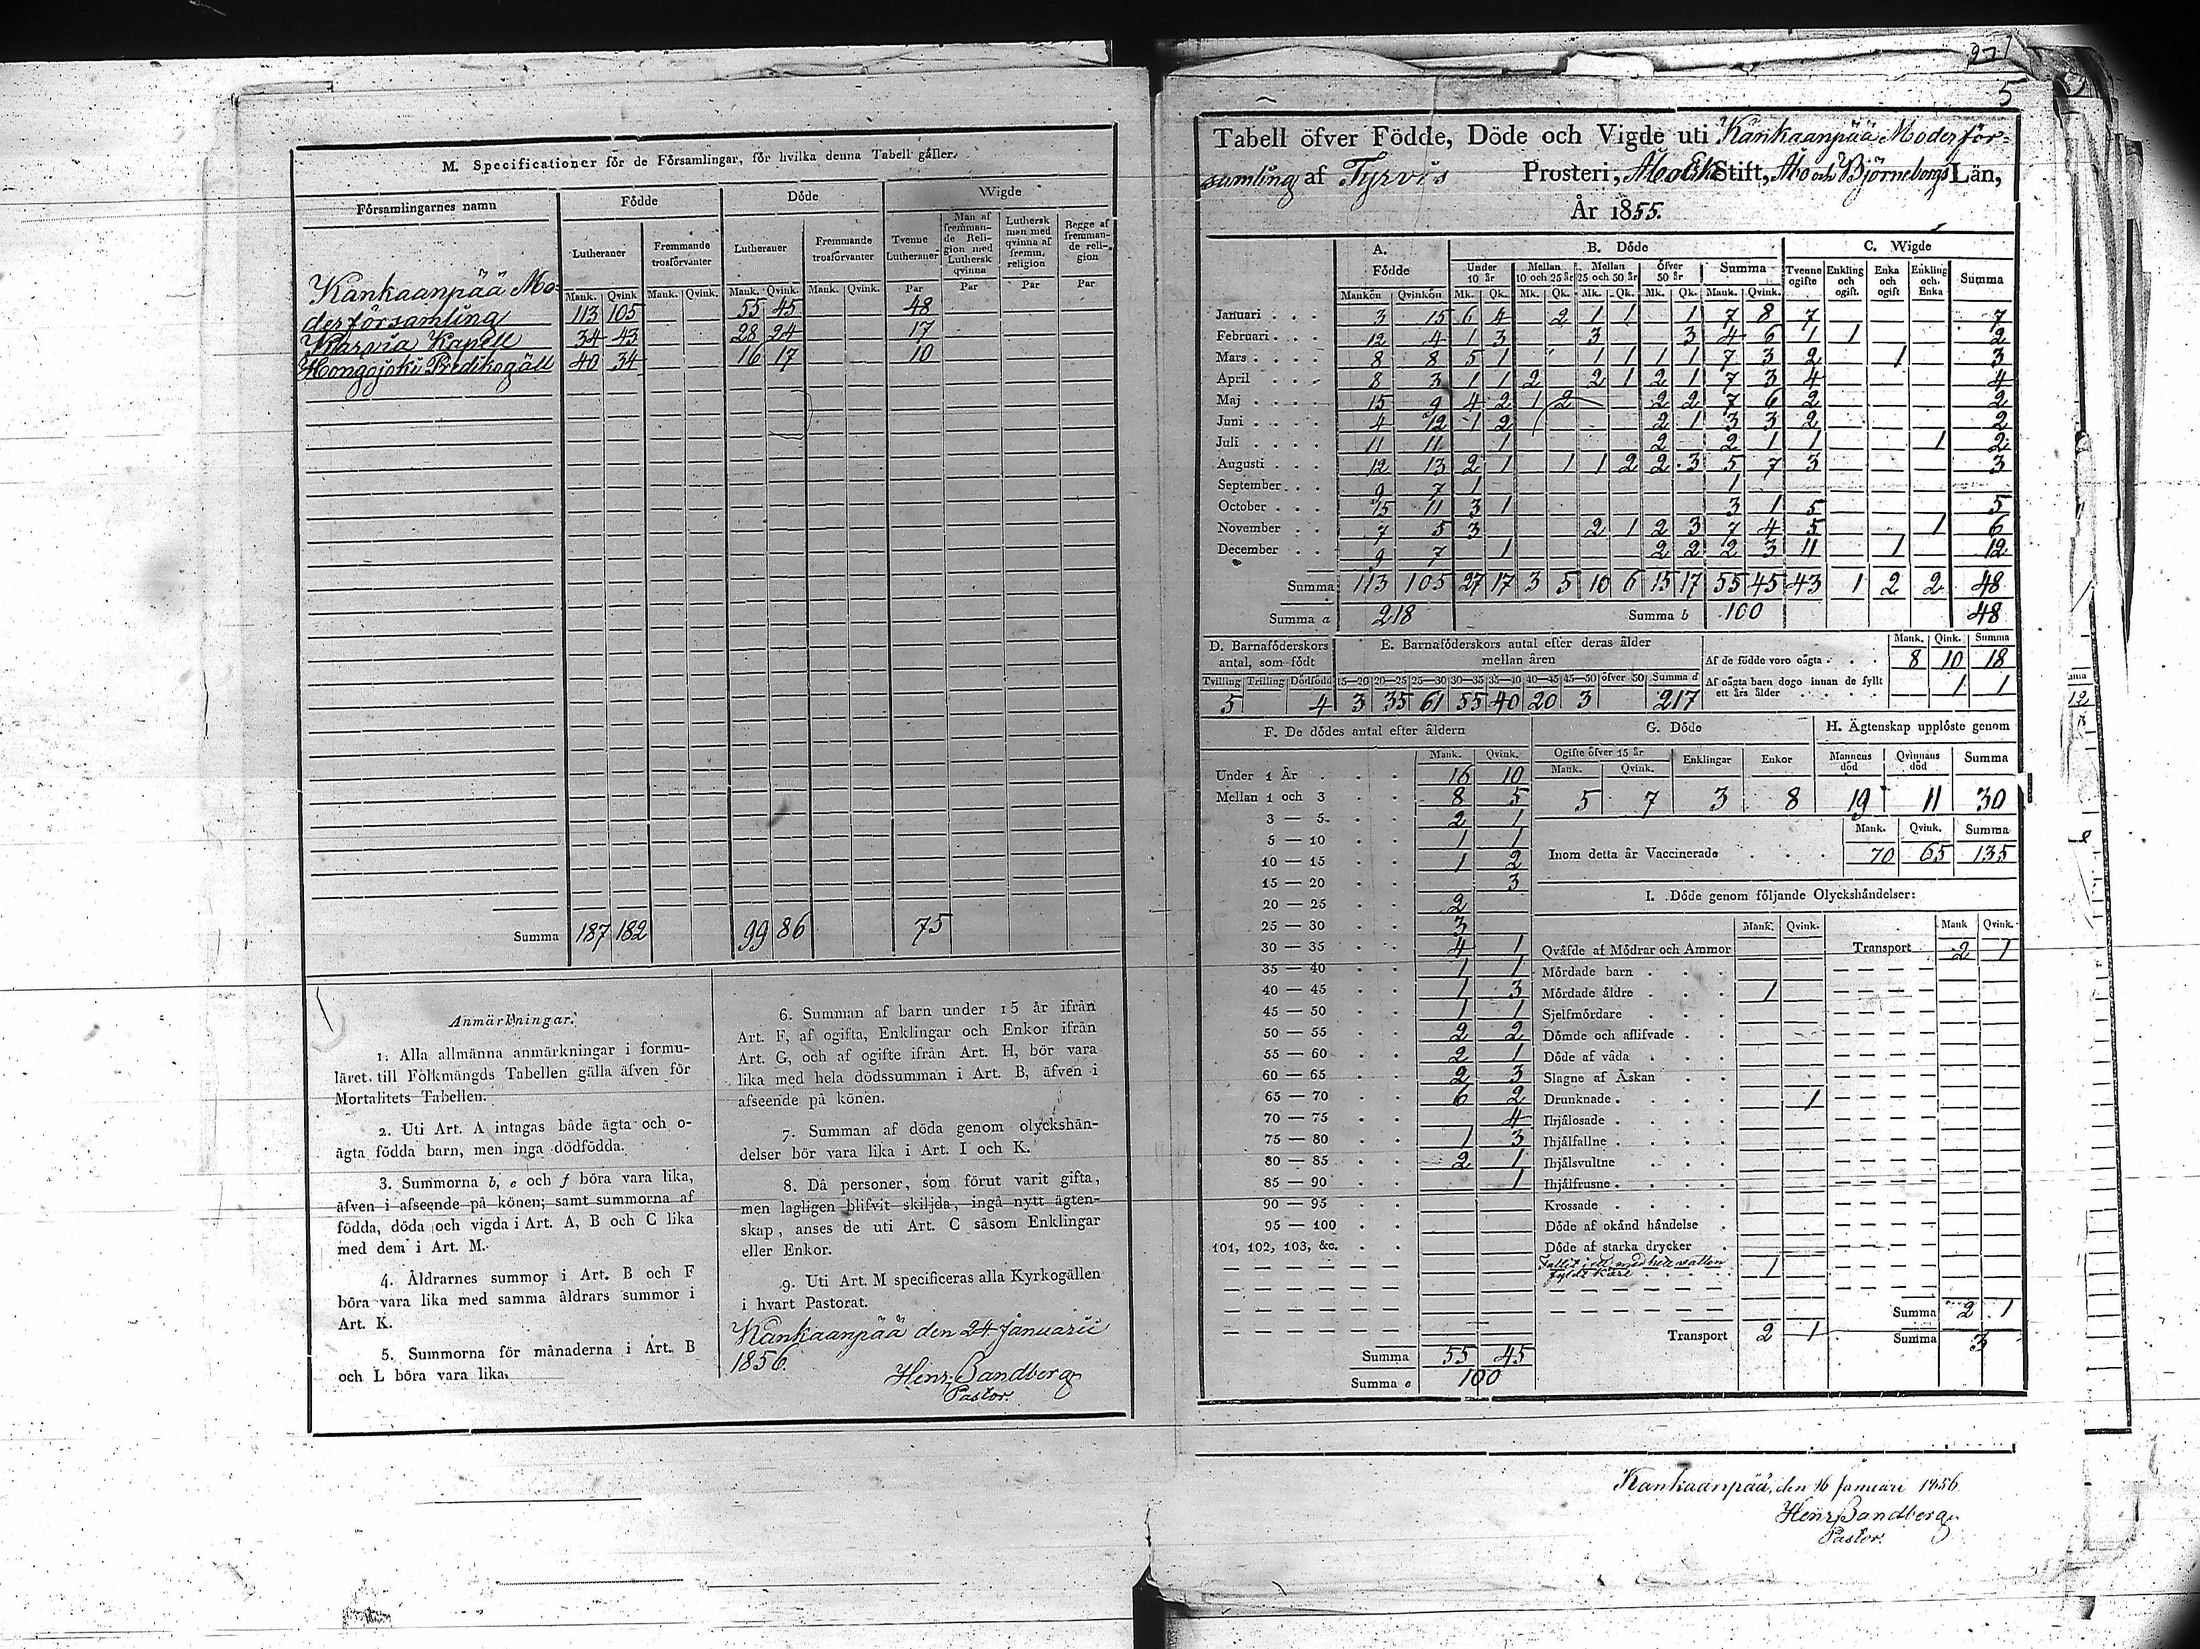 M. Specificationer för de Församlingar, för hvilka denna Tabell gäller.
Församlingarnes namn Födde Döde Wigde
Lutheraner Fremmande trosförvanter Lutheraner Fremmande trosförvanter Tvenne Lutheraner Man af fremmande Religion med Luthersk qvinna Luthersk man med qvinna af fremm. religion Begge af fremmande religion
Mank. Qvink Mank. Qvink. Mank. Qvink. Mank. Qvink. Par Par Par Par
Kankaanpää Mo-
derförsamling 113 105 55 45 48
Karvia Kapell 34 43 28 24 17
Hongojoki Predikogäll 40 34 16 17 10
Summa 187 182 99 86 75
Anmärkningar.
1. Alla allmänna anmärkningar i formu-
läret till Folkmängds Tabellen gälla äfven för
Mortalitets Tabellen.
2. Uti Art. A intagas både ägta och o-
ägta födda barn, men inga dödfödda.
3. Summorna b, e och f böra vara lika,
äfven i afseende på könen; samt summorna af
födda, döda och vigda i Art. A, B och C lika
med dem i Art. M.
4. Åldrarnes summor i Art. B och F
böra vara lika med samma åldrars summor i
Art. K.
5. Summorna för månaderna i Art. B
och L böra vara lika.
6. Summan af barn under 15 år ifrån
Art. F, af ogifta, Enklingar och Enkor ifrån
Art. G, och af ogifte ifrån Art. H, bör vara
lika med hela dödssumman i Art. B, äfven i
afseende på könen.
7. Summan af döda genom olyckshän-
delser bör vara lika i Art. I och K.
8. Då personer, som förut varit gifta,
men lagligen blifvit skiljda, ingå nytt ägten-
skap, anses de uti Art. C såsom Enklingar
eller Enkor.
9. Uti Art. M specificeras alla Kyrkogällen
i hvart Pastorat.
Kankaanpää den 24 Januarii
1856.
Henr. Sandberg
Pastor.
5
Tabell öfver Födde, Döde och Vigde uti Kankaanpää Moderför-
samling af Tyrvis Prosteri, Åbo Erke Stift, Åbo och Björneborgs Län,
År 1855.
A. Födde B. Döde C. Wigde
Under 10 år Mellan 10 och 25 år Mellan 25 och 50 år Öfver 50 år Summa Tvenne ogifte Enkling och ogift. Enka och ogift Enkling och Enka Summa
Mankön Qvinkön Mk. Qk. Mk. Qk. Mk. Qk. Mk. Qk. Mank. Qvink.
Januari 3 15 6 4 2 1 1 1 7 8 7 7
Februari 12 4 1 3 3 3 4 6 1 1 2
Mars 8 8 5 1 1 1 1 1 7 3 2 1 3
April 8 3 1 1 2 2 1 2 1 7 3 4 4
Maj 15 9 4 2 1 2 2 2 7 6 2 2
Juni 4 12 1 2 2 1 3 3 2 2
Juli 11 11 1 2 2 1 1 1 2
Augusti 12 13 2 1 1 1 2 2 3 5 7 3 3
September 9 7 1 1
October 15 11 3 1 3 1 5 5
November 7 5 3 2 1 2 3 7 4 5 1 6
December 9 7 1 2 2 2 3 11 1 12
Summa 113 105 27 17 3 5 10 6 15 17 55 45 43 1 2 2 48
Summa a 218 Summa b 100 48
D. Barnaföderskors antal, som födt E. Barnaföderskors antal efter deras ålder mellan åren
Tvilling Trilling Dödfödd 15—20 20—25 25—30 30—35 35—40 40—45 45—50 öfver 50 Summa d
5 4 3 35 61 55 40 20 3 217
Mank. Qink. Summa
Af de födde voro oägta 8 10 18
Af oägta barn dogo innan de fyllt ett års ålder 1 1
F. De dödes antal efter åldern
Mank. Qvink.
Under 1 År 16 10
Mellan 1 och 3 8 5
3 — 5 2 1
5 — 10 1 1
10 — 15 1 2
15 — 20 3
20 — 25 2
25 — 30 3
30 — 35 4 1
35 — 40 1 1
40 — 45 1 3
45 — 50 1 1
50 — 55 2 2
55 — 60 2 1
60 — 65 2 3
65 — 70 6 2
70 — 75 4
75 — 80 1 3
80 — 85 2 1
85 — 90 1
90 — 95
95 — 100
101, 102, 103, &c.
Summa 55 45
Summa e 100
G. Döde
Ogifte öfver 15 år Enklingar Enkor
Mank. Qvink.
5 7 3 8
H. Ägtenskap upplöste genom
Mannens död Qvinnans död Summa
19 11 30
Mank. Qvink. Summa
Inom detta år Vaccinerade 70 65 135
I. Döde genom följande Olyckshändelser:
Mank. Qvink. Mank Qvink.
Qväfde af Mödrar och Ammor Transport 2 1
Mördade barn
Mördade äldre 1
Sjelfmördare
Dömde och aflifvade
Döde af våda
Slagne af Åskan
Drunknade 1
Ihjälosade
Ihjälfallne
Ihjälsvultne
Ihjälfrusne
Krossade
Döde af okänd händelse
Döde af starka drycker
Fallit i ett med hett vatten
fyldt kärl 1
Summa 2 1
Transport 2 1 Summa 3
Kankaanpää, den 16 Januari 1856.
Henr. Sandberg
Pastor.